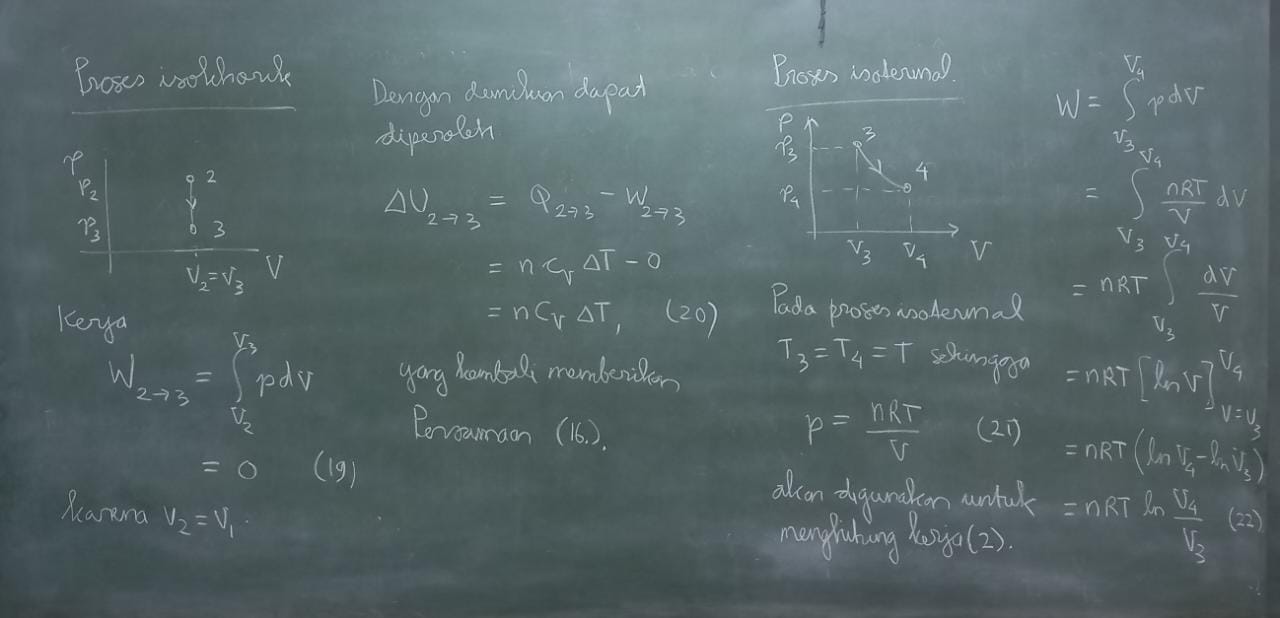 Proses isokhorik
p
p₂
p₃
2
3
V₂=V₃ V
Kerja
W₂→₃ = ∫_{V₂}^{V₃} p dV
= 0 (19)
karena V₂ = V₁.
Dengan demikian dapat
diperoleh
ΔU₂→₃ = Q₂→₃ − W₂→₃
= n C_V ΔT − 0
= n C_V ΔT, (20)
yang kembali memberikan
Persamaan (16.).
Proses isotermal.
P
P₃
P₄
3
4
V₃ V₄ V
Pada proses isotermal
T₃ = T₄ = T sehingga
p = nRT/V (21)
akan digunakan untuk
menghitung kerja (2).
W = ∫_{V₃}^{V₄} p dV
= ∫_{V₃}^{V₄} nRT/V dV
= nRT ∫_{V₃}^{V₄} dV/V
= nRT [ln V]_{V=V₃}^{V₄}
= nRT (ln V₄ − ln V₃)
= nRT ln V₄/V₃ (22)